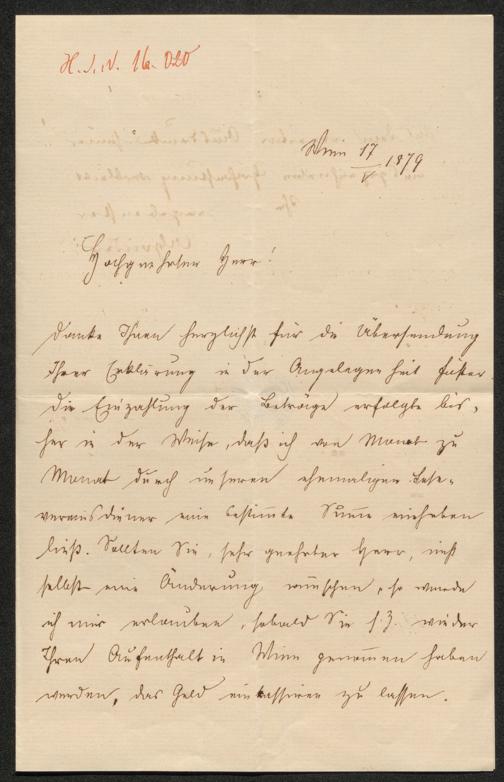 H. I. N. 16.020
Wien 17/V 1879
Hochgeehrter Herr!
danke Ihnen herzlichst für die Übersendung
Ihrer Erklärung in der Angelegenheit
Die Einzahlung der Beträge erfolgte bis-
her in der Weise, daß ich von Monat zu
Monat durch unseren ehemaligen Lese-
vereinsdiener eine bestimmte Summe einheben
ließ. Sollten Sie, sehr geehrter Herr, nicht
selbst eine Änderung wünschen, so werde
ich mir erlauben, sobald Sie s. Z. wieder
Ihren Aufenthalt in Wien genommen haben
werden, das Geld einkassiren zu lassen.